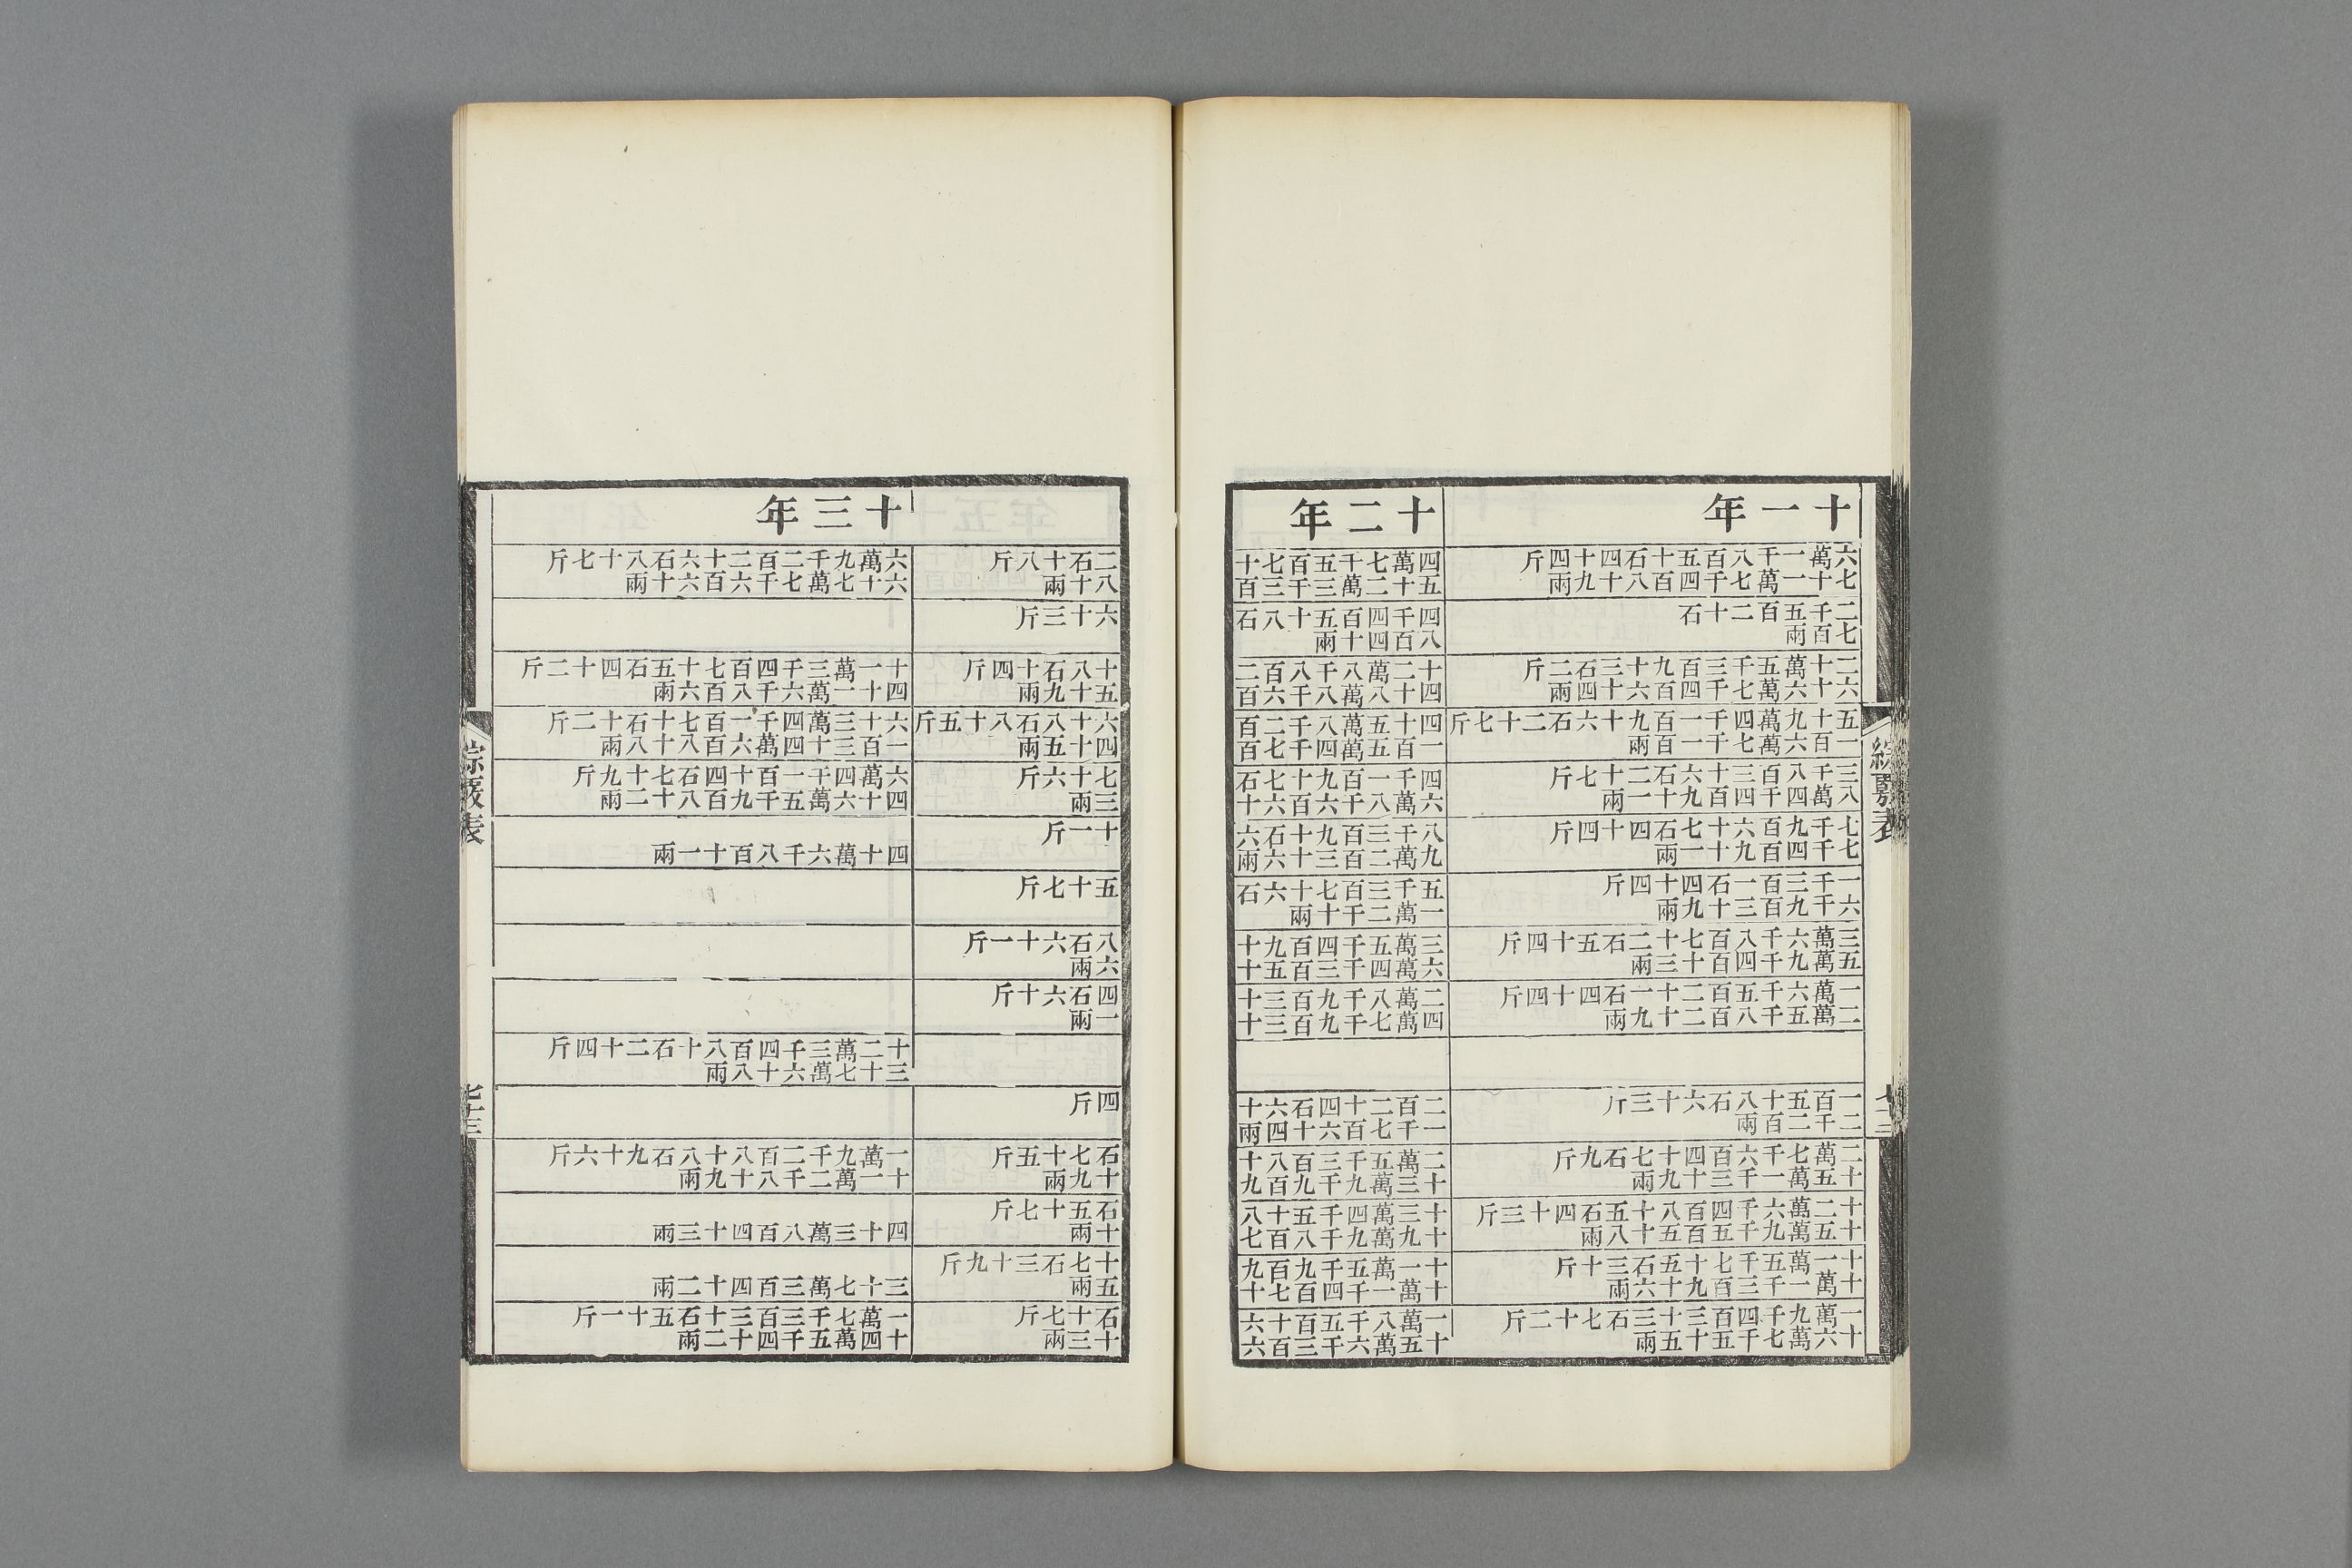 十一年
六萬一千八百五十石四十四斤
七十一萬七千四百八十九兩
二千五百二十石
七百兩
二十萬五千三百九十三石二斤
六十六萬七千四百六十四兩
五十九萬四千一百九十六石二十七斤
一百六萬七千一百兩
三千八百三十六石二十七斤
八萬四千四百九十一兩
七千九百六十七石四十四斤
七千四百九十一兩
一千三百一石四十四斤
六千九百三十九兩
三萬六千八百七十二石五十四斤
五萬九千四百十三兩
一萬六千五百二十一石四十四斤
二萬五千八百二十九兩
一百五十八石六十三斤
二千二百兩
二萬七千六百四十七石九斤
十五萬一千三十九兩
十二萬六千四百八十五石四十三斤
十五萬九千五百五十八兩
十一萬五千七十五石三十斤
十萬一千三百九十六兩
一萬九千四百三十三石七十二斤
十六萬七千五十五兩
十二年
四萬七千五百七十
五十二萬三千三百
四千四百五十八石
八百四十兩
十二萬八千八百二
四十八萬八千六百
四十五萬八千二百
一百五萬四千七百
四千一百九十七石
六萬八千六百六十
八千三百九十石六
九萬二百三十六兩
五千三百七十六石
一萬二千十兩
三萬五千四百九十
六萬四千三百五十
二萬八千九百三十
四萬七千九百三十
二百二十四石六十
一千七百六十四兩
二萬五千三百八十
十三萬九千九百九
十三萬四千五十八
十九萬九千八百七
十一萬五千九百九
十萬一千四百七十
一萬八千五百十六
十五萬六千三百六
二石十八斤
八十兩
六十三斤
十八石十四斤
五十九兩
六十八石八十五斤
四十五兩
七十六斤
三兩
十一斤
五十七斤
八石六十一斤
六兩
四石六十斤
一兩
四斤
石七十五斤
十九兩
石五十七斤
十兩
十七石三十九斤
五兩
石十七斤
十三兩
十三年
六萬九千二百二十六石八十七斤
六十七萬七千六百六十兩
十一萬三千四百七十五石四十二斤
四十一萬六千八百六兩
六十三萬四千一百七十石十二斤
一百三十四萬六百八十八兩
六萬四千一百十四石七十九斤
四十六萬五千九百八十二兩
四十萬六千八百十一兩
十二萬三千四百八十石二十四斤
三十七萬六十八兩
一萬九千二百八十八石九十六斤
十一萬二千八十九兩
四十三萬八百四十三兩
三十七萬三百四十二兩
一萬七千三百三十石五十一斤
十四萬五千四十二兩
綜覈表
七十三